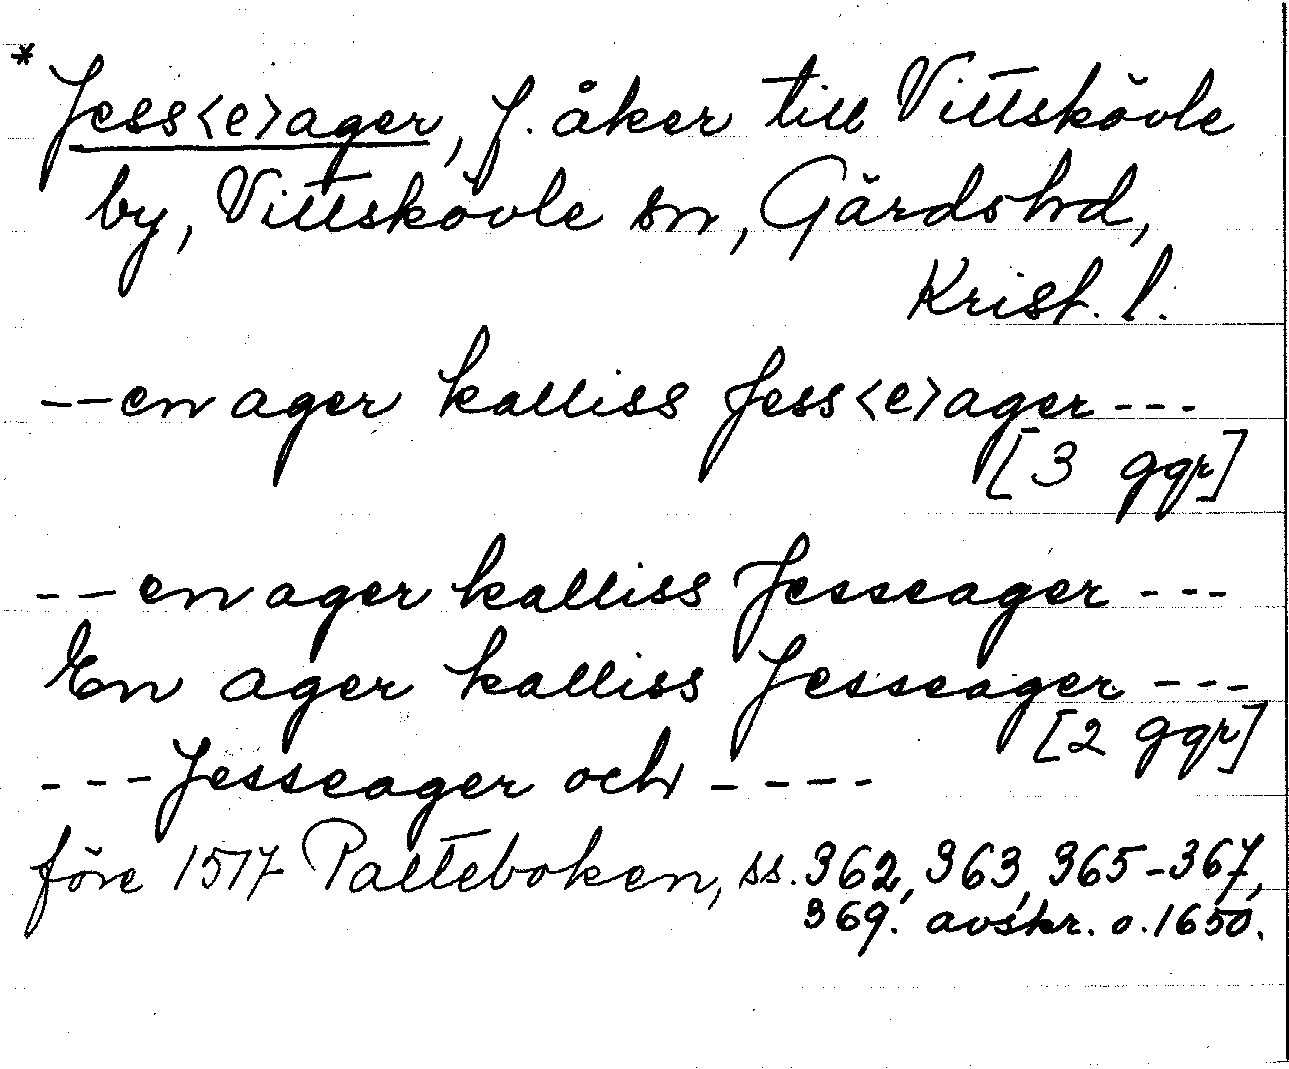 * Jess<e>ager, f. åker till Vittskövle
by, Vittskövle sn, Gärdshd,
Krist. l.
--en ager kalliss Jess<e>ager---
[3 ggr]
--en ager kalliss Jesseager---
En ager kalliss Jesseager---
[2 ggr]
---Jesseager och----
före 1517 Palteboken, ss. 362, 363, 365-367,
369. avskr. o. 1650.